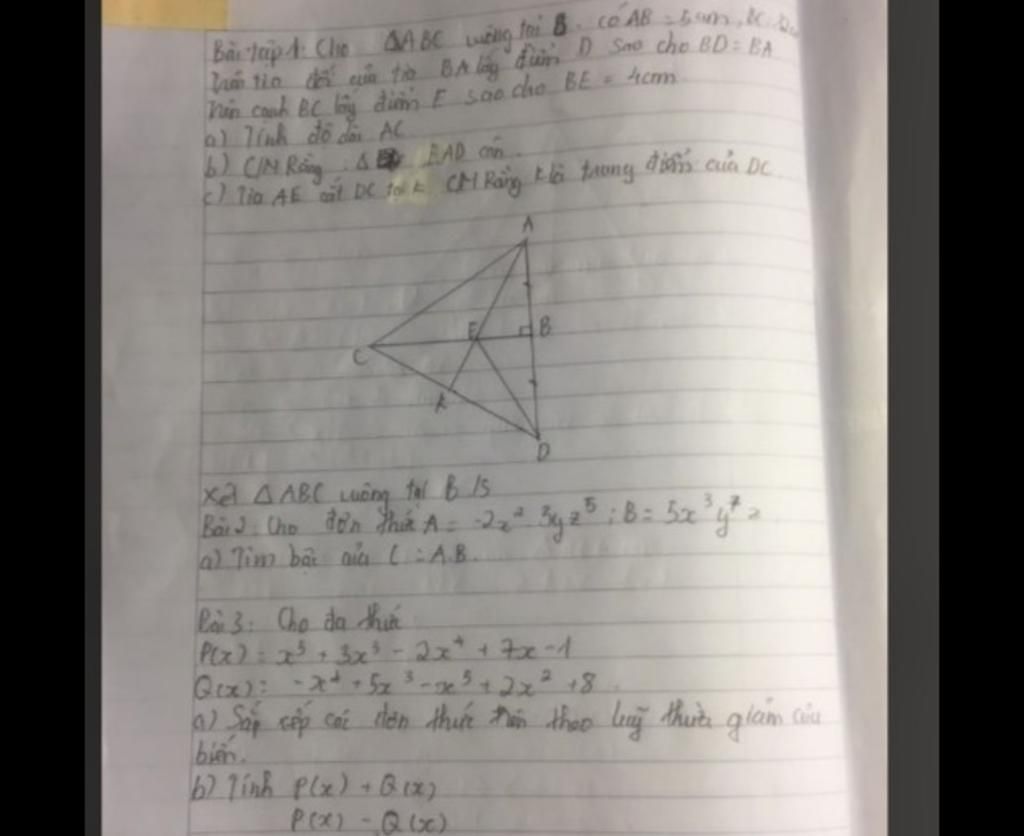 Bài tập 1: Cho ΔABC vuông tại B. có AB = 5cm, BC
Trên tia đối của tia BA lấy điểm D sao cho BD = BA
Trên cạnh BC lấy điểm E sao cho BE = 4cm
a) Tính độ dài AC
b) C/M Rằng Δ EAD cân
c) Tia AE cắt DC tại K CM Rằng K là trung điểm của DC
A
E
B
C
K
D
Xét ΔABC vuông tại B
Bài 2: Cho đơn thức A = -2x² 3yz⁵ ; B = 5x³y⁷z
a) Tìm bậc của C = A.B.
Bài 3: Cho đa thức
P(x) = x⁵ + 3x³ - 2x⁴ + 7x - 1
Q(x) = -x⁴ + 5x³ - x⁵ + 2x² + 8
a) Sắp xếp các đơn thức trên theo luỹ thừa giảm của
biến.
b) Tính P(x) + Q(x)
P(x) - Q(x)